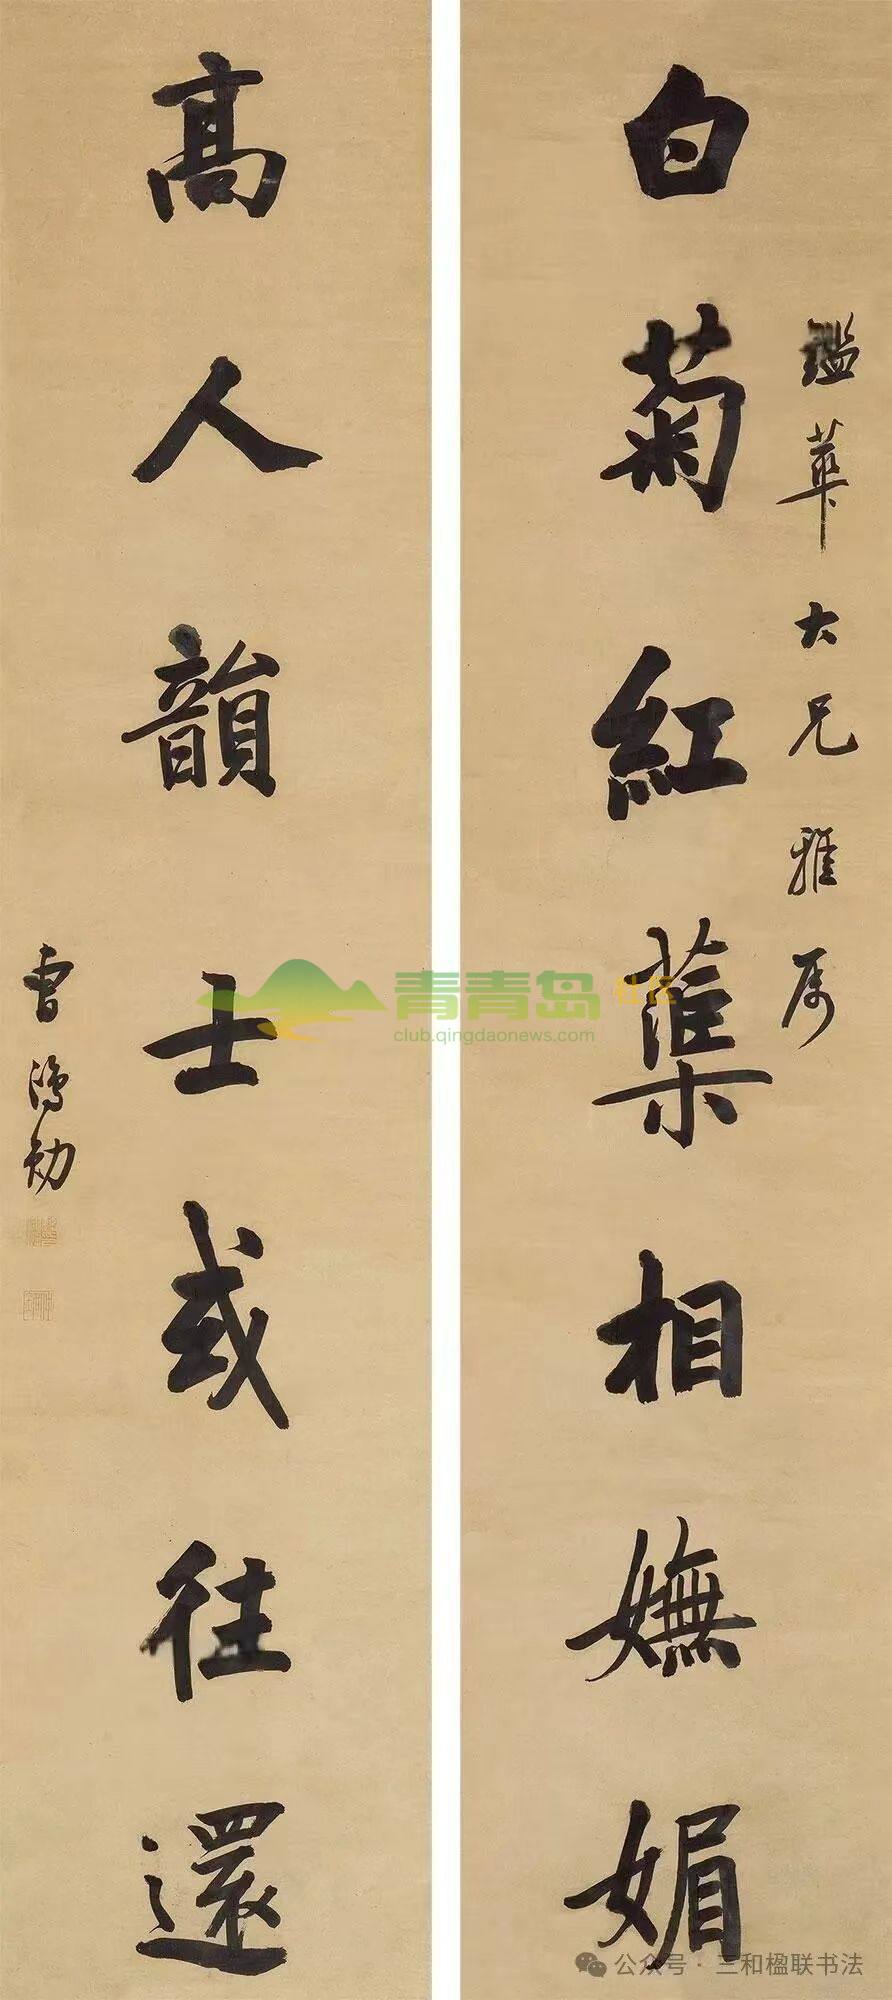 白菊紅蕖相嫵媚
鑑華大兄雅属
高人韻士或往還
曹鴻勛
青青岛社区
club.qingdaonews.com
公众号·三和楹联书法